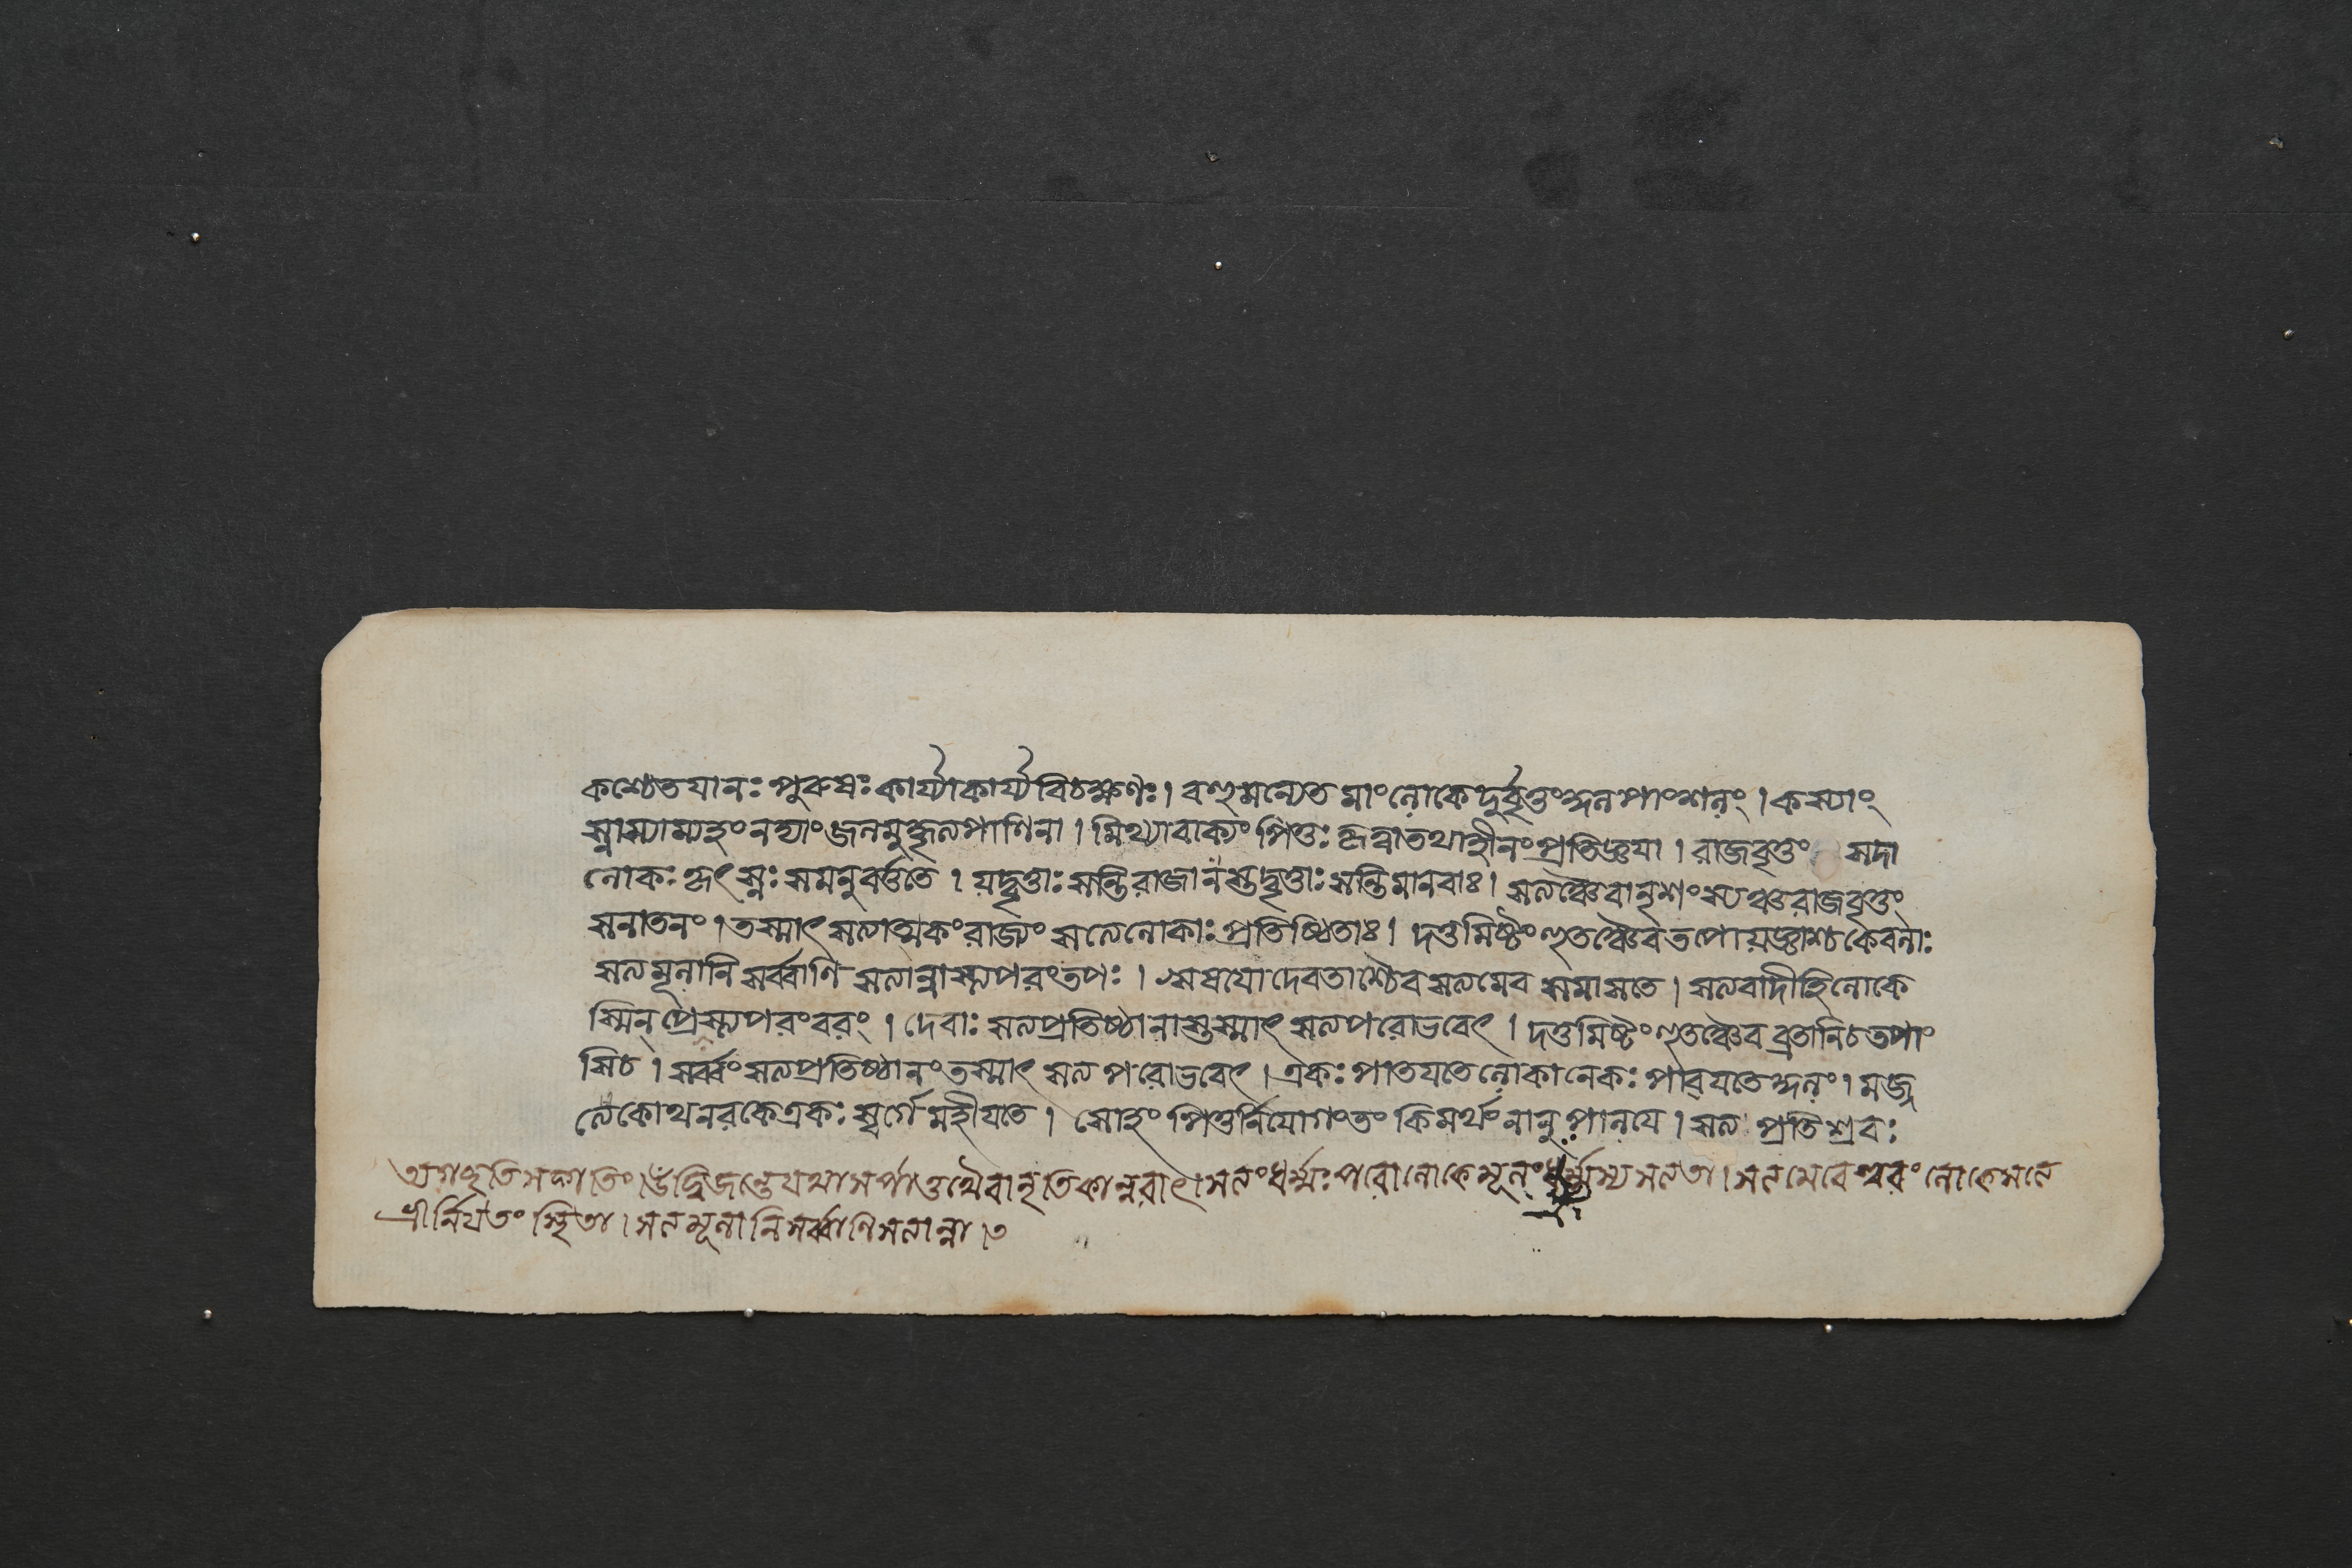 কশ্চেতযানঃ পুরুষঃ কার্য্যাকার্য্যবিচক্ষণঃ। বহুমন্যেত মাংলোকে দুর্বৃত্তংকুলপাংশনং। কস্যাং
স্নাস্যাম্যহং নহ্যাং জলমুদ্ধৃত্যপাণিনা। মিথ্যাবাক্যং পিতুঃ কৃত্বাতথাহীনংপ্রতিজ্ঞযা। রাজবৃত্তং সদা
লোকঃ কৃৎস্নঃ সমনুবর্ত্ততে। যদ্বৃত্তাঃ সন্তি রাজানস্তদ্বৃত্তাঃ সন্তিমানবাঃ। সত্যঞ্চৈবানৃশংস্যঞ্চরাজবৃত্তং
সনাতনং। তস্মাৎ সত্যাত্মকংরাজ্যং সত্যেলোকাঃ প্রতিষ্ঠিতাঃ। দত্তমিষ্টংহুতঞ্চৈবতপোযজ্ঞাশ্চকেবলাঃ
সত্যমূলানি সর্ব্বাণি সত্যান্নাস্ত্যপরংতপঃ। ঋষযোদেবতাশ্চৈবসত্যমেব সমাসতে। সত্যবাদীহিলোকে
স্মিন্ প্রেস্ত্যপরংবরং। দেবাঃ সত্যপ্রতিষ্ঠানাস্তস্মাৎ সত্যপরোভবেৎ। দত্তমিষ্টংহুতঞ্চৈবব্রতানিচতপাং
সিচ। সর্ব্বংসত্যপ্রতিষ্ঠানংতস্মাৎ সত্যপরোভবেৎ। একঃ পাতযতেলোকানেকঃ পাবযতেকুলং। মজ্জ
ত্যেকোথনরকেএকঃ স্বর্গেমহীযতে। সোহং পিতুর্নিযোগংতং কিমর্থং নানুপালযে। সত্য প্রতিশ্রবঃ
উদ্বিজন্তেযথাসর্পাত্তথৈবানৃতিকান্নরাৎ। সত্যংধর্ম্মঃপরোলোকেমূলংধর্ম্মস্যসত্যতা। সত্যমেবেশ্বরংলোকেসত্যে
শ্রীর্নিযতংস্থিতা। সত্যমূলানিসর্ব্বাণিসত্যান্না ৩